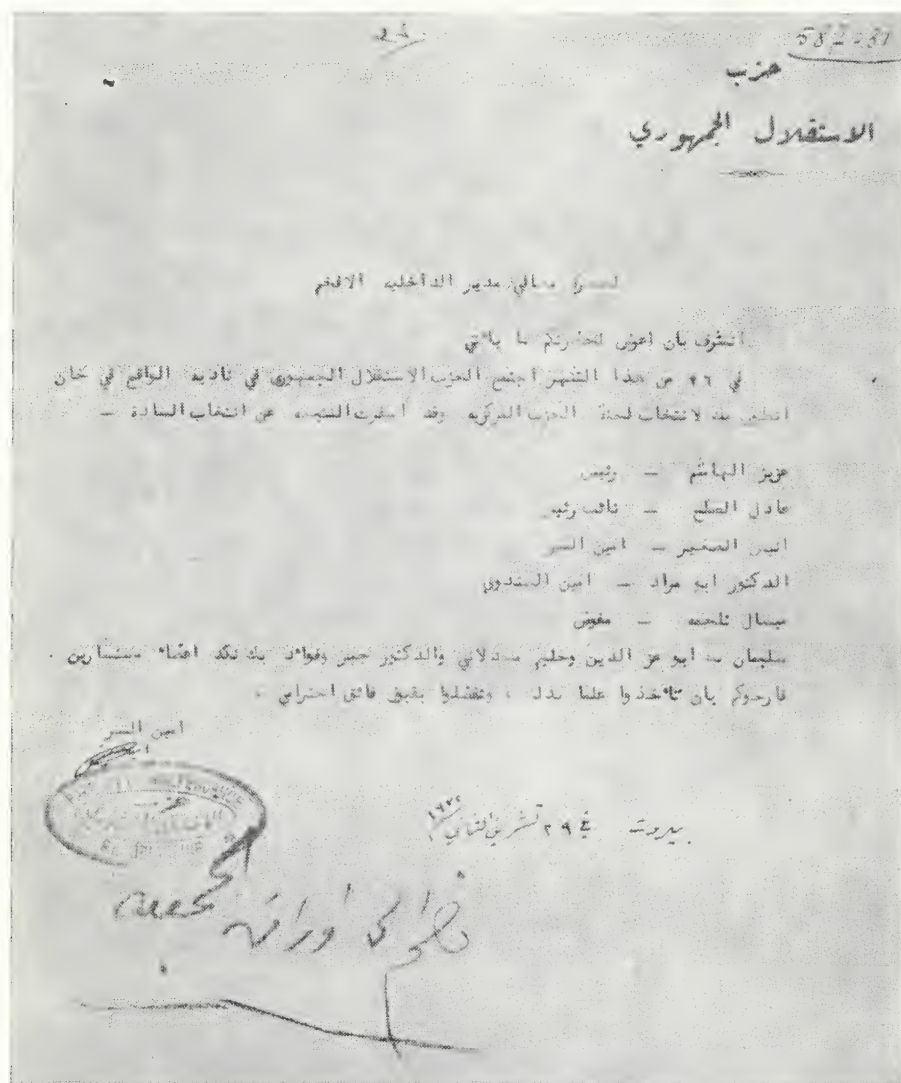 حزب
الاستقلال الجمهوري
معالي مدير الداخلية الافخم
اتشرف بان اعرض لحضرتكم ما يأتي
في ٢٦ من هذا الشهر اجتمع الحزب الاستقلال الجمهوري في ناديه الواقع في خان
لانتخاب لجنة الحزب المركزيه وقد اسفرت النتيجه عن انتخاب السادة —
عزيز الهاشم — رئيس
عادل الصلح — نائب رئيس
انيس الصغير — امين السر
الدكتور ابو مراد — امين الصندوق
ميشال تلحمه — مفوض
سليمان ابو عز الدين وحليم والدكتور وفوائد بك اعضاء مستشارين .
فارجوكم بان تأخذوا علما بذلك ، وتفضلوا بقبول فائق احترامي .
امين السر
حزب
بيروت في ٢٩ تشرين الثاني
تضم الى اوراق الجمعية